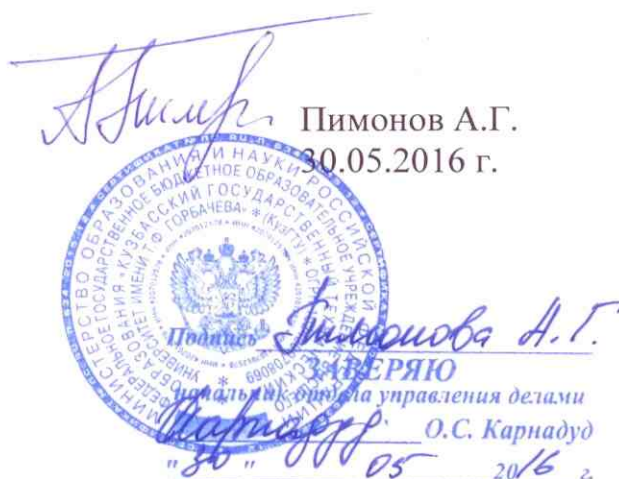 Пимонов А.Г.
30.05.2016 г.
МИНИСТЕРСТВО ОБРАЗОВАНИЯ И НАУКИ РОССИЙСКОЙ
ФЕДЕРАЛЬНОЕ ГОСУДАРСТВЕННОЕ БЮДЖЕТНОЕ ОБРАЗОВАТЕЛЬНОЕ УЧРЕЖДЕНИЕ
ОБРАЗОВАНИЯ «КУЗБАССКИЙ ГОСУДАРСТВЕННЫЙ
УНИВЕРСИТЕТ ИМЕНИ Т.Ф. ГОРБАЧЕВА» * (КузГТУ) * ОГРН
Подпись Пимонова А.Г.
ЗАВЕРЯЮ
начальник отдела управления делами
О.С. Карнадуд
"30" 05 2016 г.